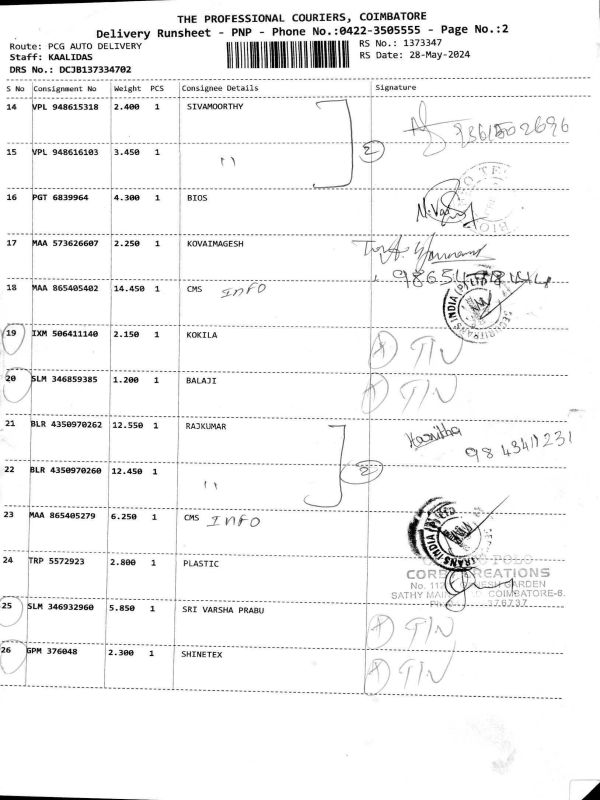 THE PROFESSIONAL COURIERS, COIMBATORE
Delivery Runsheet - PNP - Phone No.:0422-3505555 - Page No.:2
Route: PCG AUTO DELIVERY RS No.: 1373347
Staff: KAALIDAS RS Date: 28-May-2024
DRS No.: DCJB137334702
S No Consignment No Weight PCS Consignee Details Signature
14 VPL 948615318 2.400 1 SIVAMOORTHY
15 VPL 948616103 3.450 1 " 2
16 PGT 6839964 4.300 1 BIOS
17 MAA 573626607 2.250 1 KOVAIMAGESH
18 MAA 865405402 14.450 1 CMS INFO
SECURITRANS INDIA (P) LTD
19 IXM 506411140 2.150 1 KOKILA
20 SLM 346859385 1.200 1 BALAJI
21 BLR 4350970262 12.550 1 RAJKUMAR
22 BLR 4350970260 12.450 1 " 2
23 MAA 865405279 6.250 1 CMS INFO
24 TRP 5572923 2.800 1 PLASTIC
POLO
CREATIONS
GARDEN
SATHY COIMBATORE-6.
25 SLM 346932960 5.850 1 SRI VARSHA PRABU
26 GPM 376048 2.300 1 SHINETEX